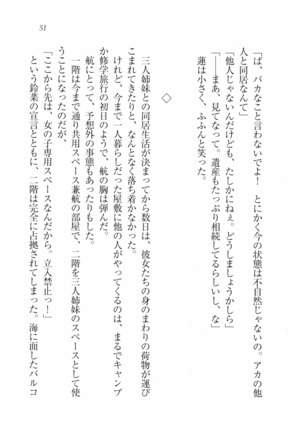 51
「ば、バカなこと言わないでよ！　とにかく今の状態は不自然じゃないの。アカの他
人と同居なんて」
「他人じゃないんだけども、たしかにねぇ。どうしましょうかしら」
「――まあ、見てなって。遺産もたっぷり相続してるらしいし、な」
蓮は小さく、ふふんと笑った。
◇
三人姉妹との同居生活が決まってから数日は、彼女たちの身のまわりの荷物が運び
こまれてきたりと、なんとなく落ち着かなかった。
けれど、今まで一人暮らしだった屋敷に他の人がやってくるのは、まるでキャンプ
か修学旅行の初日のようで、航の胸は弾んだ。
航にとって、予想外の事態もあったりもした。
一階は今まで通り共用スペース兼航の部屋で、二階を三人姉妹のスペースとして使
うことになったのだが、
「ここから先は、女の子専用スペースなんだから。立入禁止っ！」
という鈴菜の宣言とともに、二階は完全に占拠されてしまった。海に面したバルコ